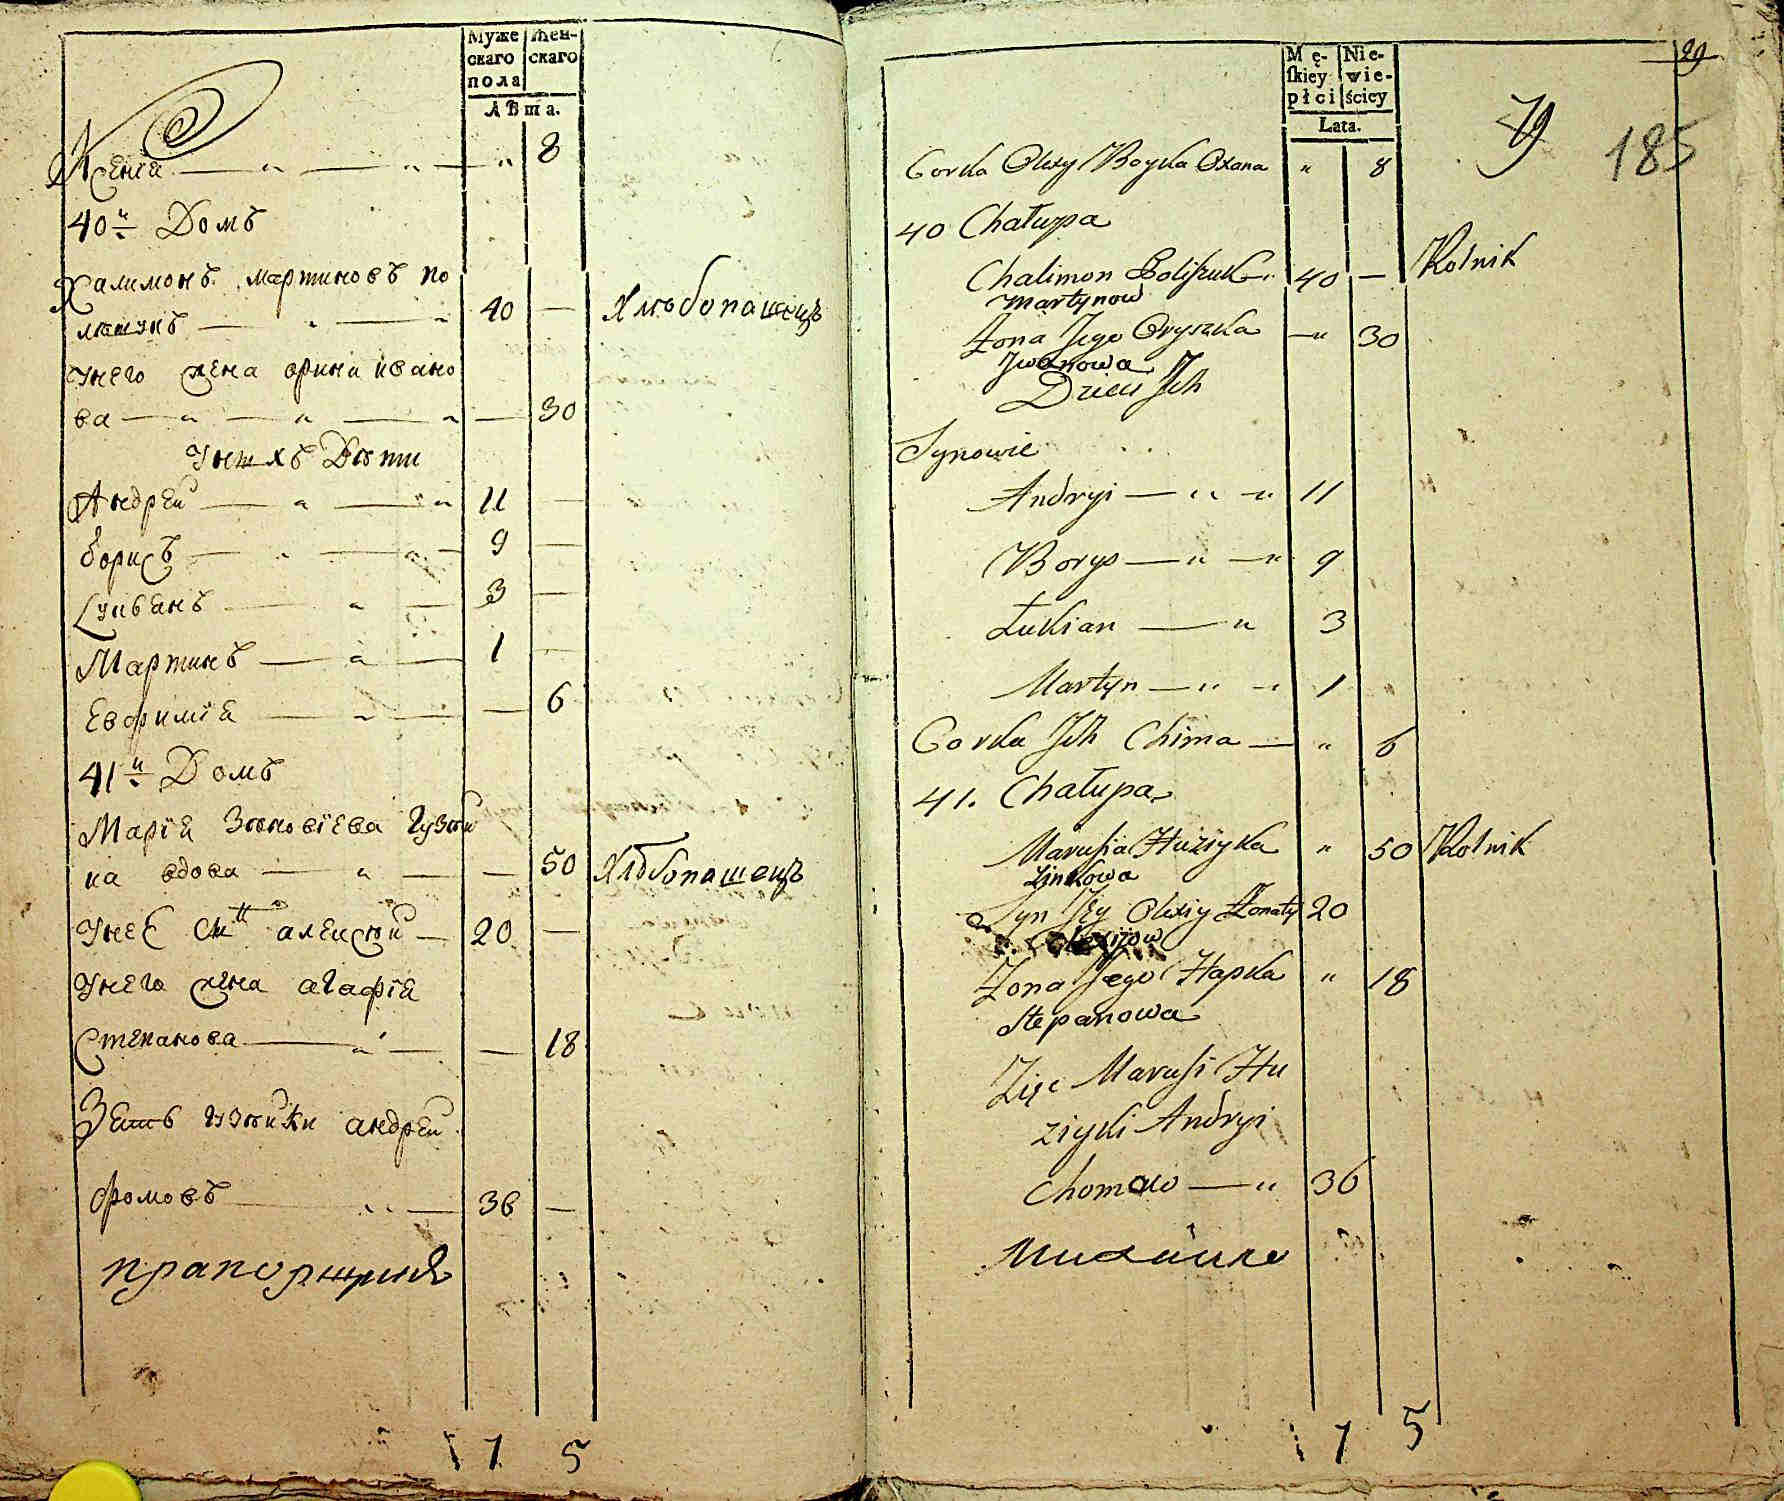 Муже
скаго
пола
Жен-
скаго
Лѣта.
Ксенїя — „ — „ — „ 8
40й Домъ
Халимонъ мартиновъ по
лѣшукъ — „ — „ 40 — Хлѣбопашецъ
Унего жена орина ивано
ва — „ — „ — „ — 30
Унихъ Дѣти
Андрей — „ — „ 11 —
Борисъ — „ — „ 9 —
Лукьянъ — „ — 3 —
Мартинъ — „ — 1 —
Евфимїя — „ — — 6
41й Домъ
Марїя Зѣновїева Гузѣй
ка вдова — „ — — 50 Хлѣбопашецъ
Унеѣ алексѣй — 20 —
Унего жена агафїя
Степанова — „ — — 18
Зять гузѣйки андрей
Фомовъ — „ — 36 —
прапорщикъ
1 7 5
Mę-
ſkiey
płci
Nie-
wie-
ściey
Lata.
29
79
185
Corka Olexy Boyka Oxana „ 8
40 Chałupa
Chalimon Poliszuk 40 — Rolnik
Martynow
Żona Jego Oryszka — „ 30
Jwanowa
Dzieci Jch
Synowie
Andryi — „ — „ 11
Borys — „ — „ 9
Łukian — „ 3
Martyn — „ — „ 1
Corka Jch Chima — „ 6
41. Chałupa
Marusia Huziyka „ 50 Rolnik
Zinkowa
Syn Jey Olexiy Żonaty 20
Żona Jego Hapka „ 18
Stepanowa
Zięć Marusi Hu
ziyki Andryi
Chomow — „ 36
Михайло
1 7 5